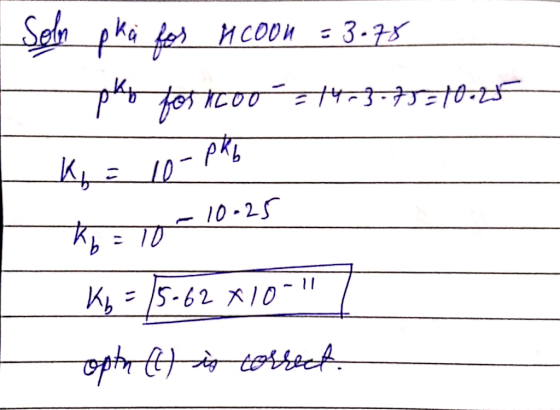 Soln pKa for HCOOH = 3.75
pKb for HCOO⁻ = 14-3.75=10.25
Kb = 10^-pKb
Kb = 10^-10.25
Kb = 5.62 × 10^-11
optn (C) is correct.